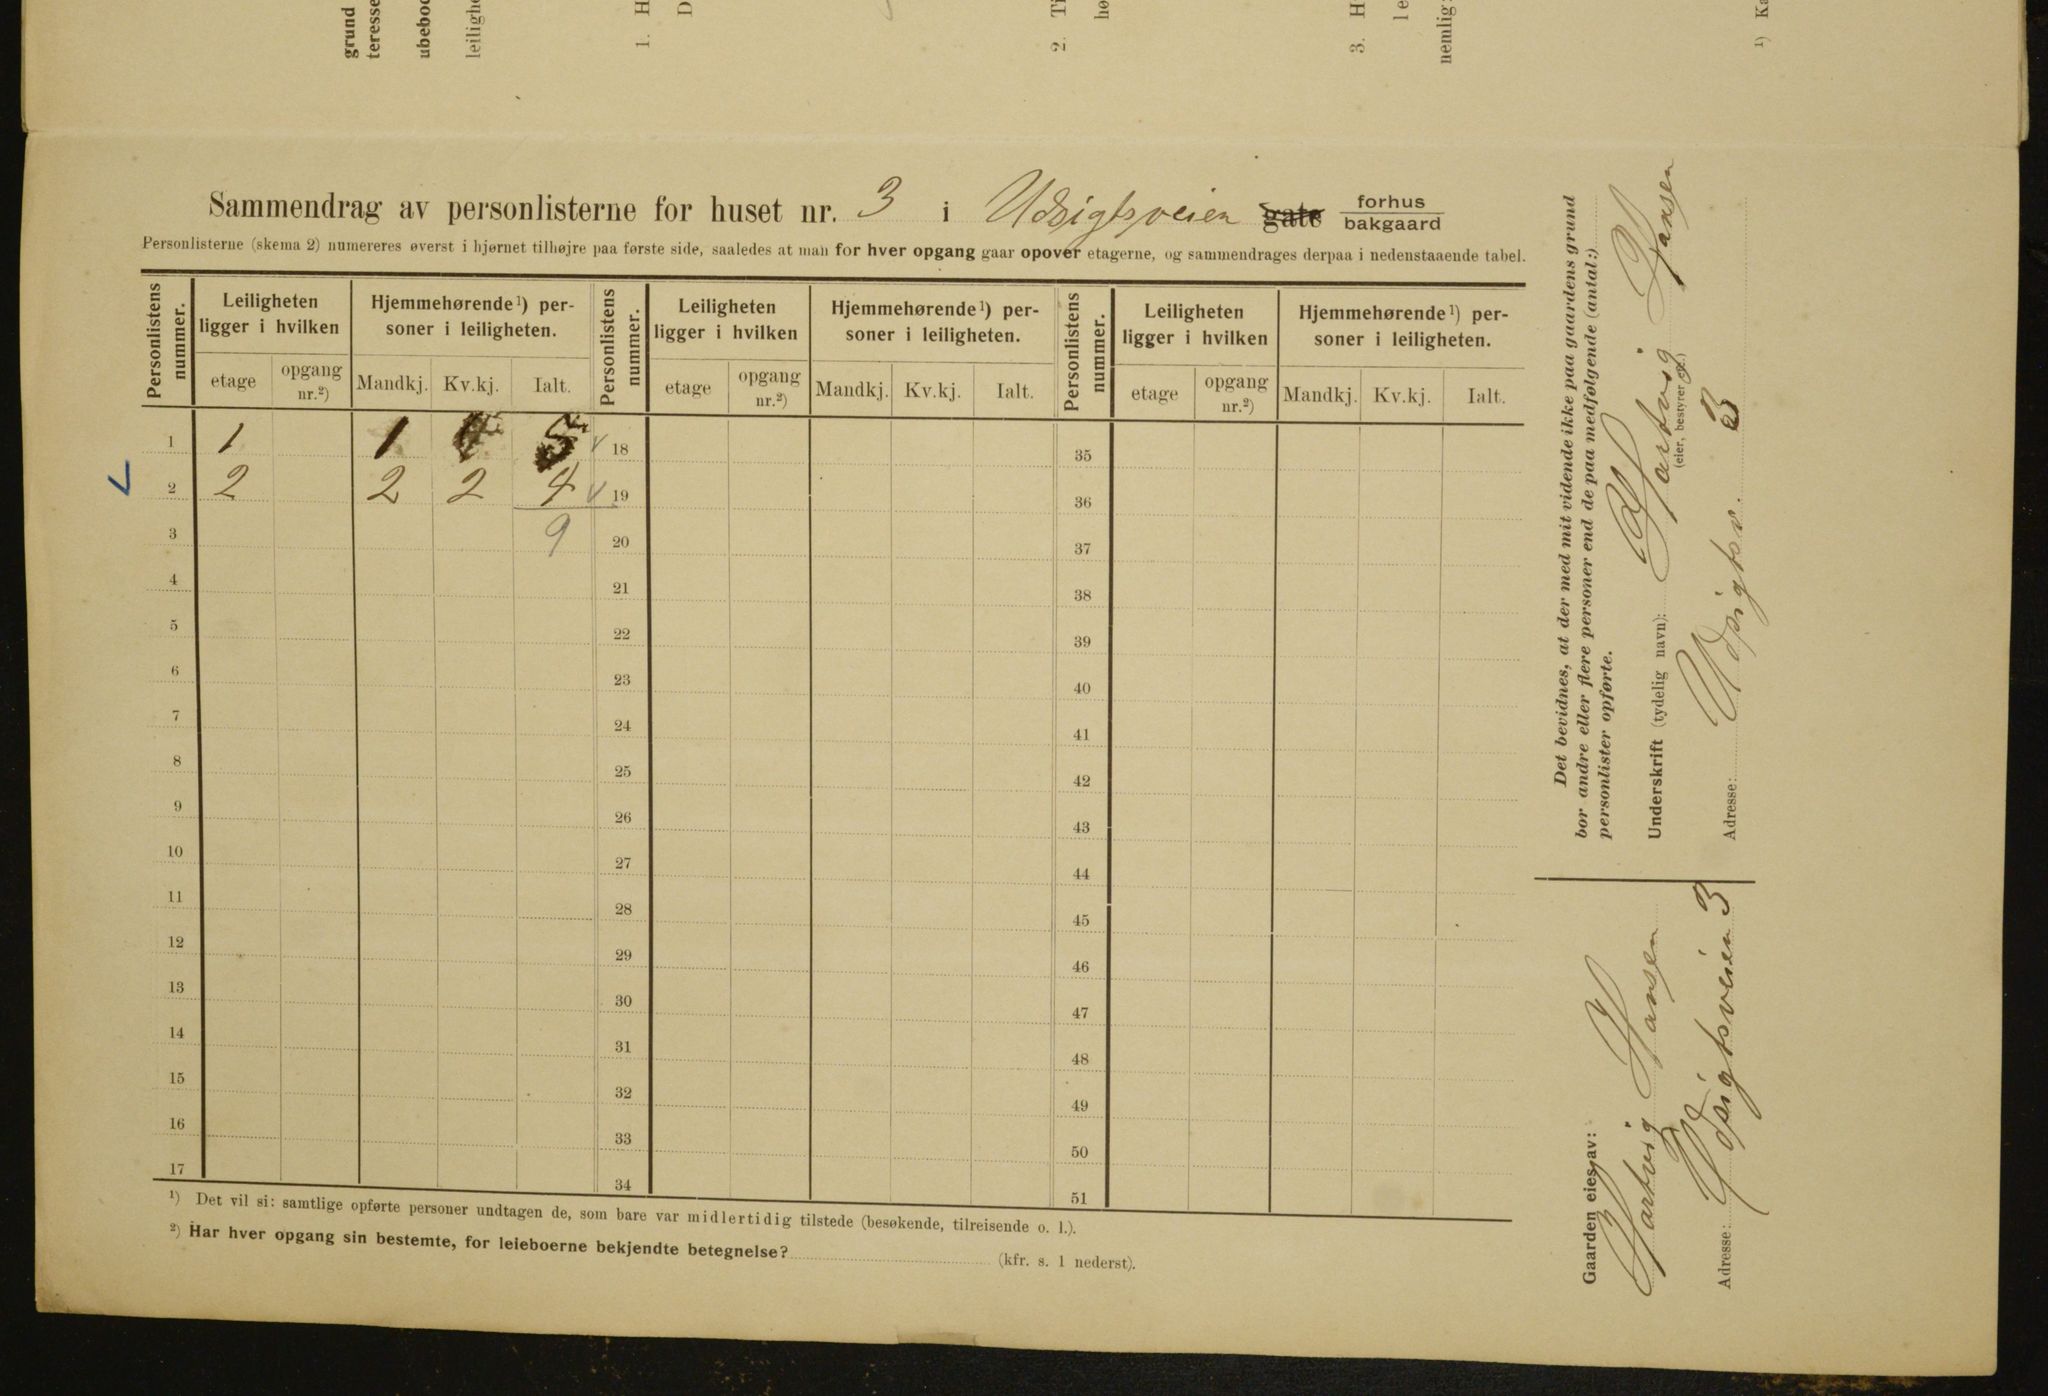 grund
teresse
ubeboe
leilighe
1. H
D
2. Ti
hø
3. H
le
nemlig:
¹) Ka
Sammendrag av personlisterne for huset nr. 3 i Udsigtsveien gate forhus
bakgaard
Personlisterne (skema 2) numereres øverst i hjørnet tilhøjre paa første side, saaledes at man for hver opgang gaar opover etagerne, og sammendrages derpaa i nedenstaaende tabel.
Personlistens nummer. Leiligheten ligger i hvilken Hjemmehørende¹) personer i leiligheten. Personlistens nummer. Leiligheten ligger i hvilken Hjemmehørende¹) personer i leiligheten. Personlistens nummer. Leiligheten ligger i hvilken Hjemmehørende¹) personer i leiligheten.
etage opgang nr.²) Mandkj. Kv.kj. Ialt. etage opgang nr.²) Mandkj. Kv.kj. Ialt. etage opgang nr.²) Mandkj. Kv.kj. Ialt.
1 1 1 4 5 18 35
2 2 2 2 4 19 36
3 9 20 37
4 21 38
5 22 39
6 23 40
7 24 41
8 25 42
9 26 43
10 27 44
11 28 45
12 29 46
13 30 47
14 31 48
15 32 49
16 33 50
17 34 51
¹) Det vil si: samtlige opførte personer undtagen de, som bare var midlertidig tilstede (besøkende, tilreisende o. l.).
²) Har hver opgang sin bestemte, for leieboerne bekjendte betegnelse? (kfr. s. 1 nederst).
Det bevidnes, at der med mit vidende ikke paa gaardens grund
bor andre eller flere personer end de paa medfølgende (antal:)
personlister opførte.
Underskrift (tydelig navn): Hartvig Hansen
(eier, bestyrer etc.)
Adresse: Udsigtsv. 3
Gaarden eies av:
Hartvig Hansen
Adresse: Udsigtsveien 3